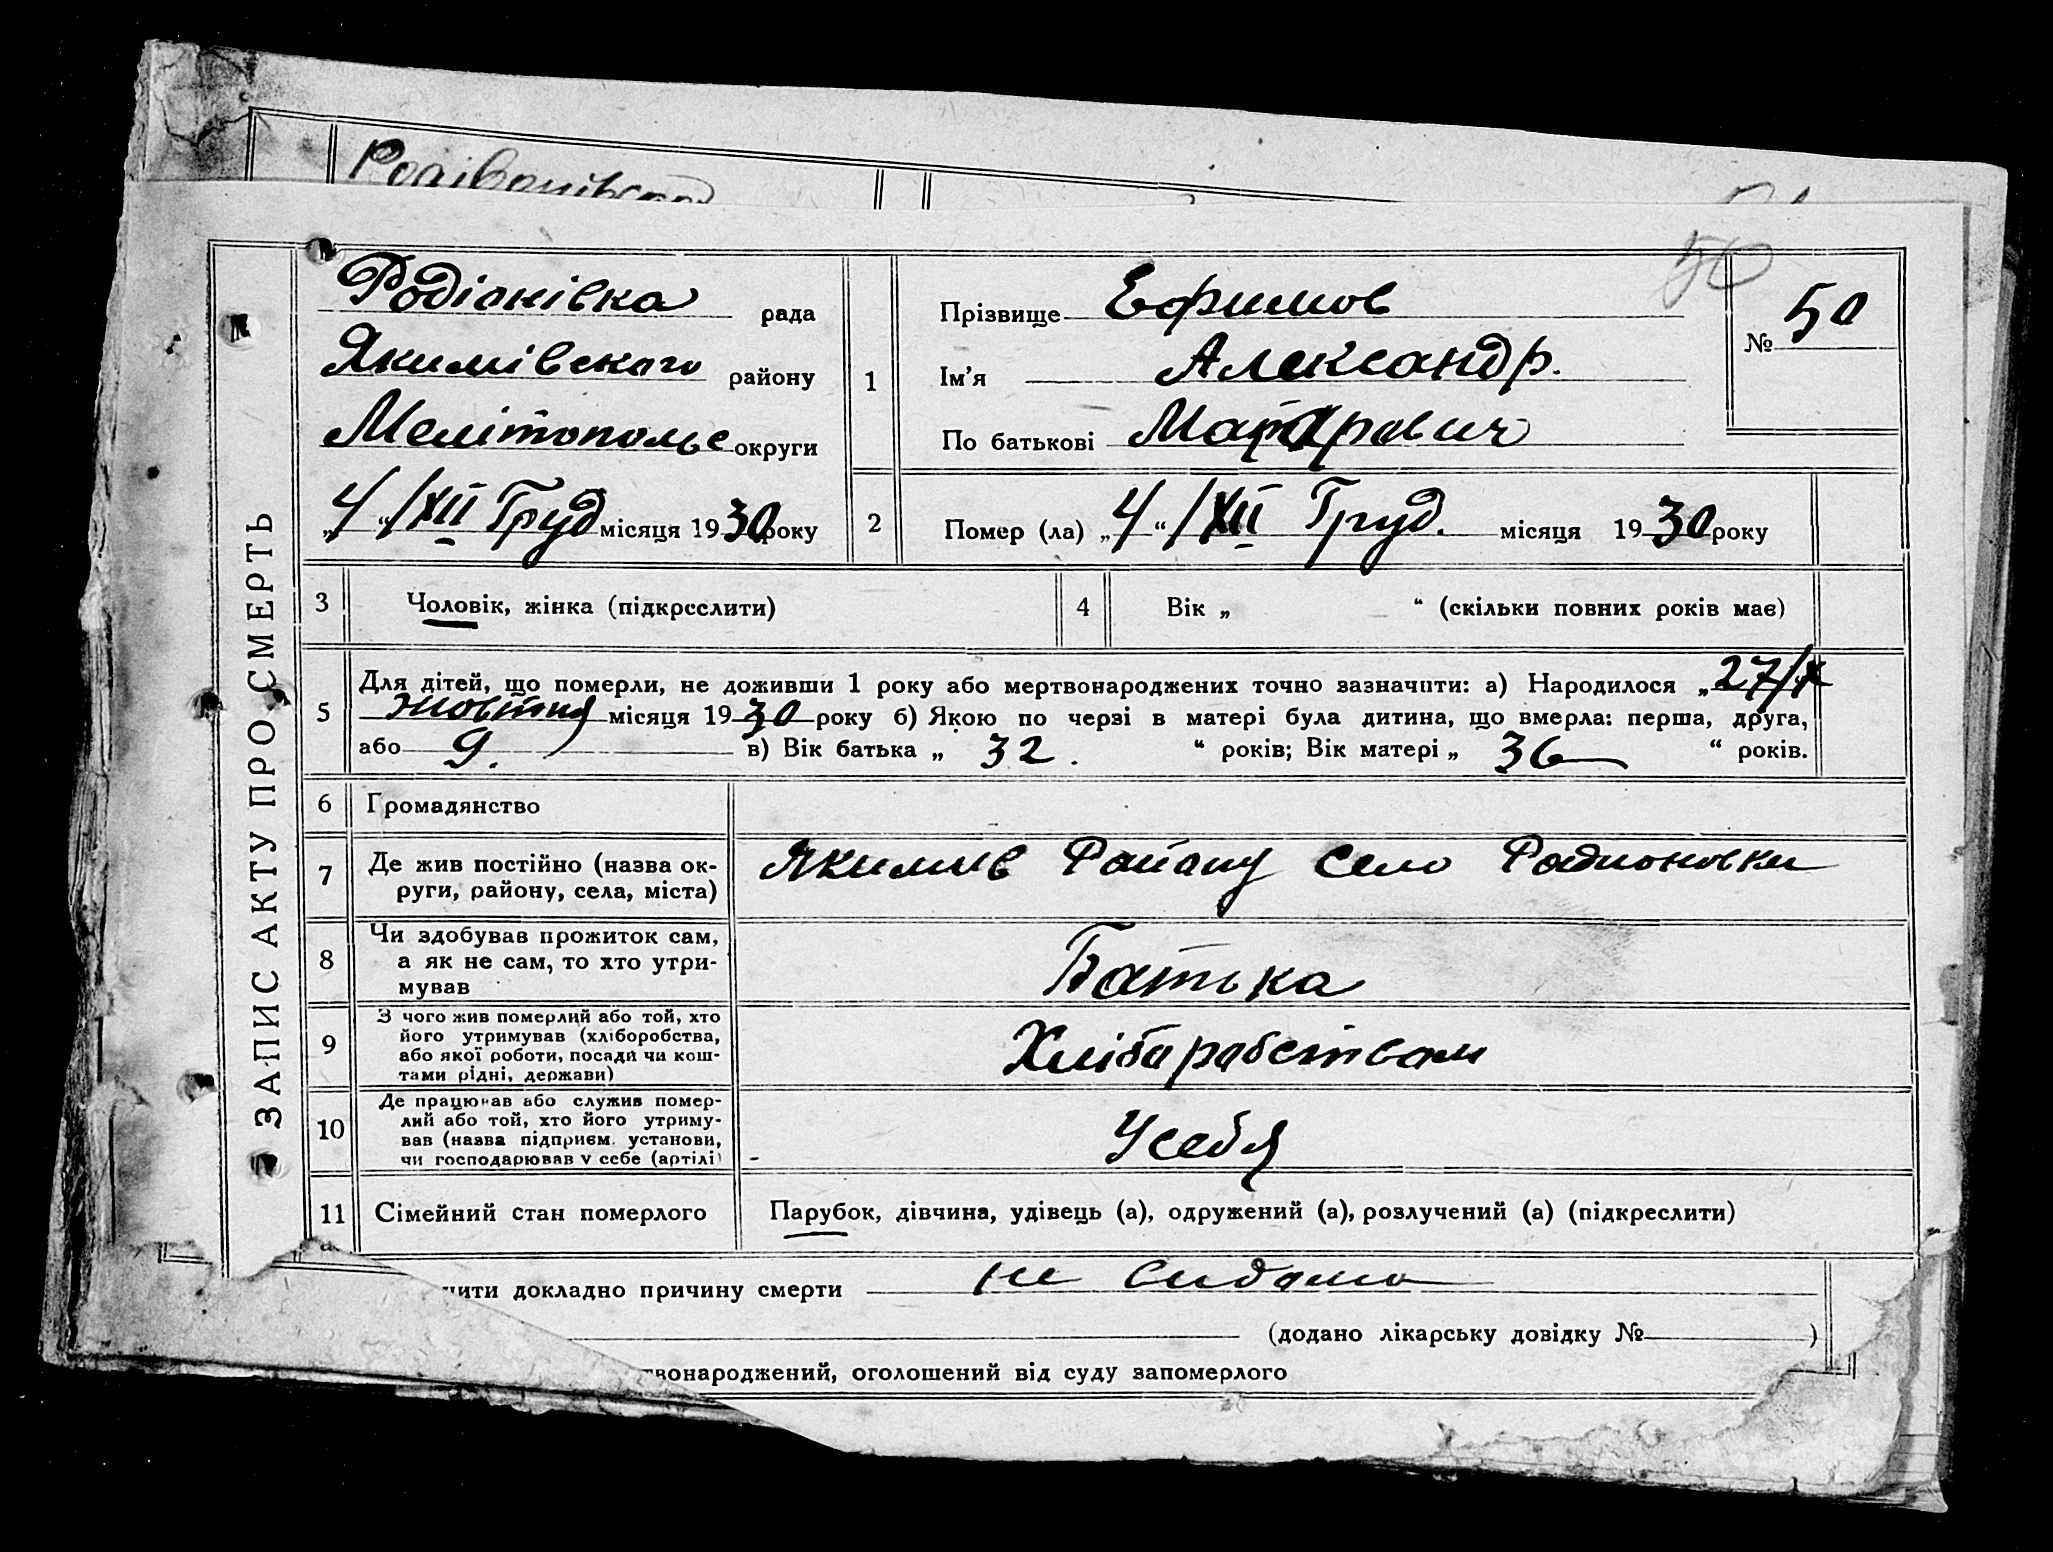 50
ЗАПИС АКТУ ПРО СМЕРТЬ
Родіонівка рада
Якимівского району
Мелітопольс округи
„4“/XII Груд місяця 1930 року
1
Прізвище Ефимов
Ім’я Александр.
По батькові
№ 50
2
Помер (ла) „4“ /XII Груд. місяця 1930 року
3 Чоловік, жінка (підкреслити)
4 Вік „ “ (скільки повних років має)
5
Для дітей, що померли, не доживши 1 року або мертвонароджених точно зазначити: а) Народилося „27/X
жовтня місяця 1930 року б) Якою по черзі в матері була дитина, що вмерла: перша, друга,
або 9. в) Вік батька „ 32. “ років; Вік матері „ 36 “ років.
6 Громадянство
7 Де жив постійно (назва ок-
руги, району, села, міста)
Якимив Району село Родионовки
8 Чи здобував прожиток сам,
а як не сам, то хто утри-
мував
Батька
9 З чого жив померлий або той, хто
його утримував (хліборобства,
або якої роботи, посади чи кош-
тами рідні, держави)
Хліборобством
10 Де працював або служив помер-
лий або той, хто його утриму-
вав (назва підприєм. установи,
чи господарював у себе (артілі)
У себя
11 Сімейний стан померлого
Парубок, дівчина, удівець (а), одружений (а), розлучений (а) (підкреслити)
чити докладно причину смерти не
(додано лікарську довідку № )
твонароджений, оголошений від суду запомерлого